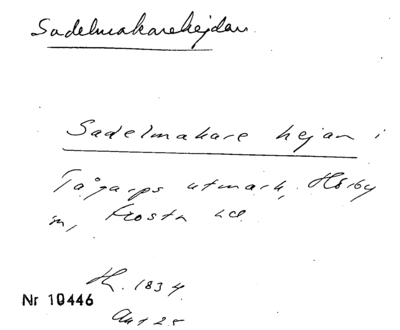 Sadelmakarehejdan
Sadelmakare hejan i
Tågarps utmark, Hörby
sn, Frosta hd.
H. 1834
Nr 10446